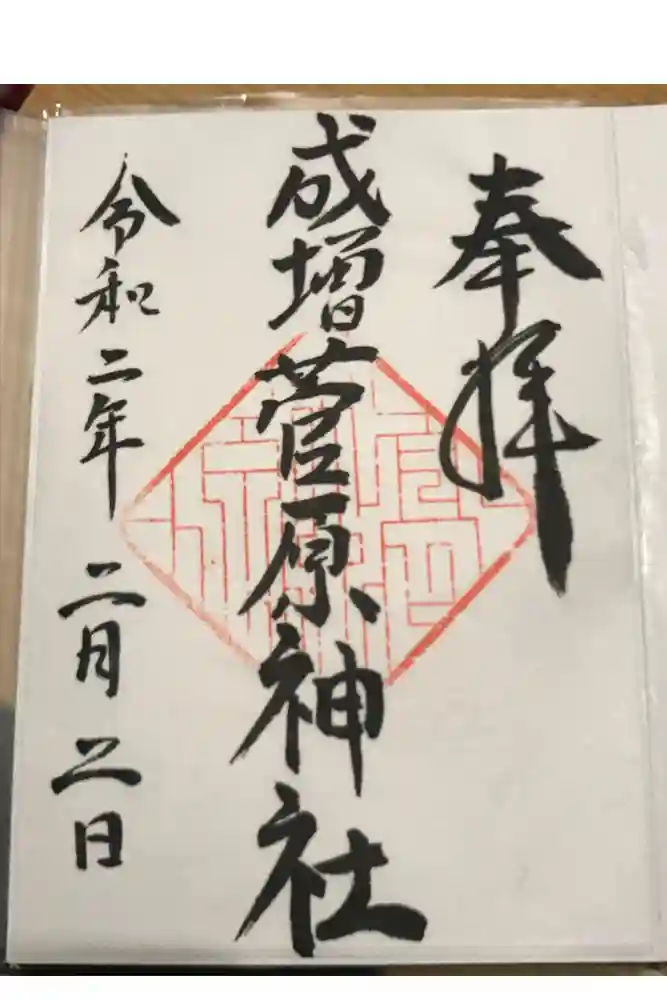 奉拝
成増菅原神社
令和二年 二月二日